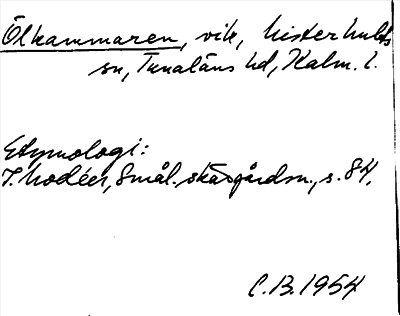 Ölkammaren, vik, Misterhults
sn, Tunaläns hd, Kalm. l.
Etymologi:
I. Modéer, Smål. skärgårdsn., s. 84.
C.B. 1954